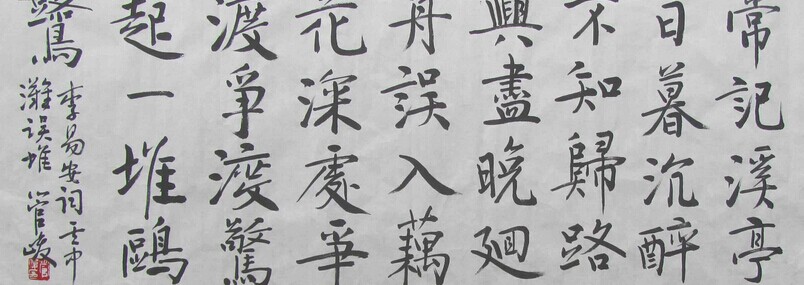 常記溪亭
日暮沉醉
不知歸路
興盡晚廻
舟誤入藕
花深處爭
渡爭渡驚
起一堆鷗
鷺
李易安词云中
灘误堆 管峻